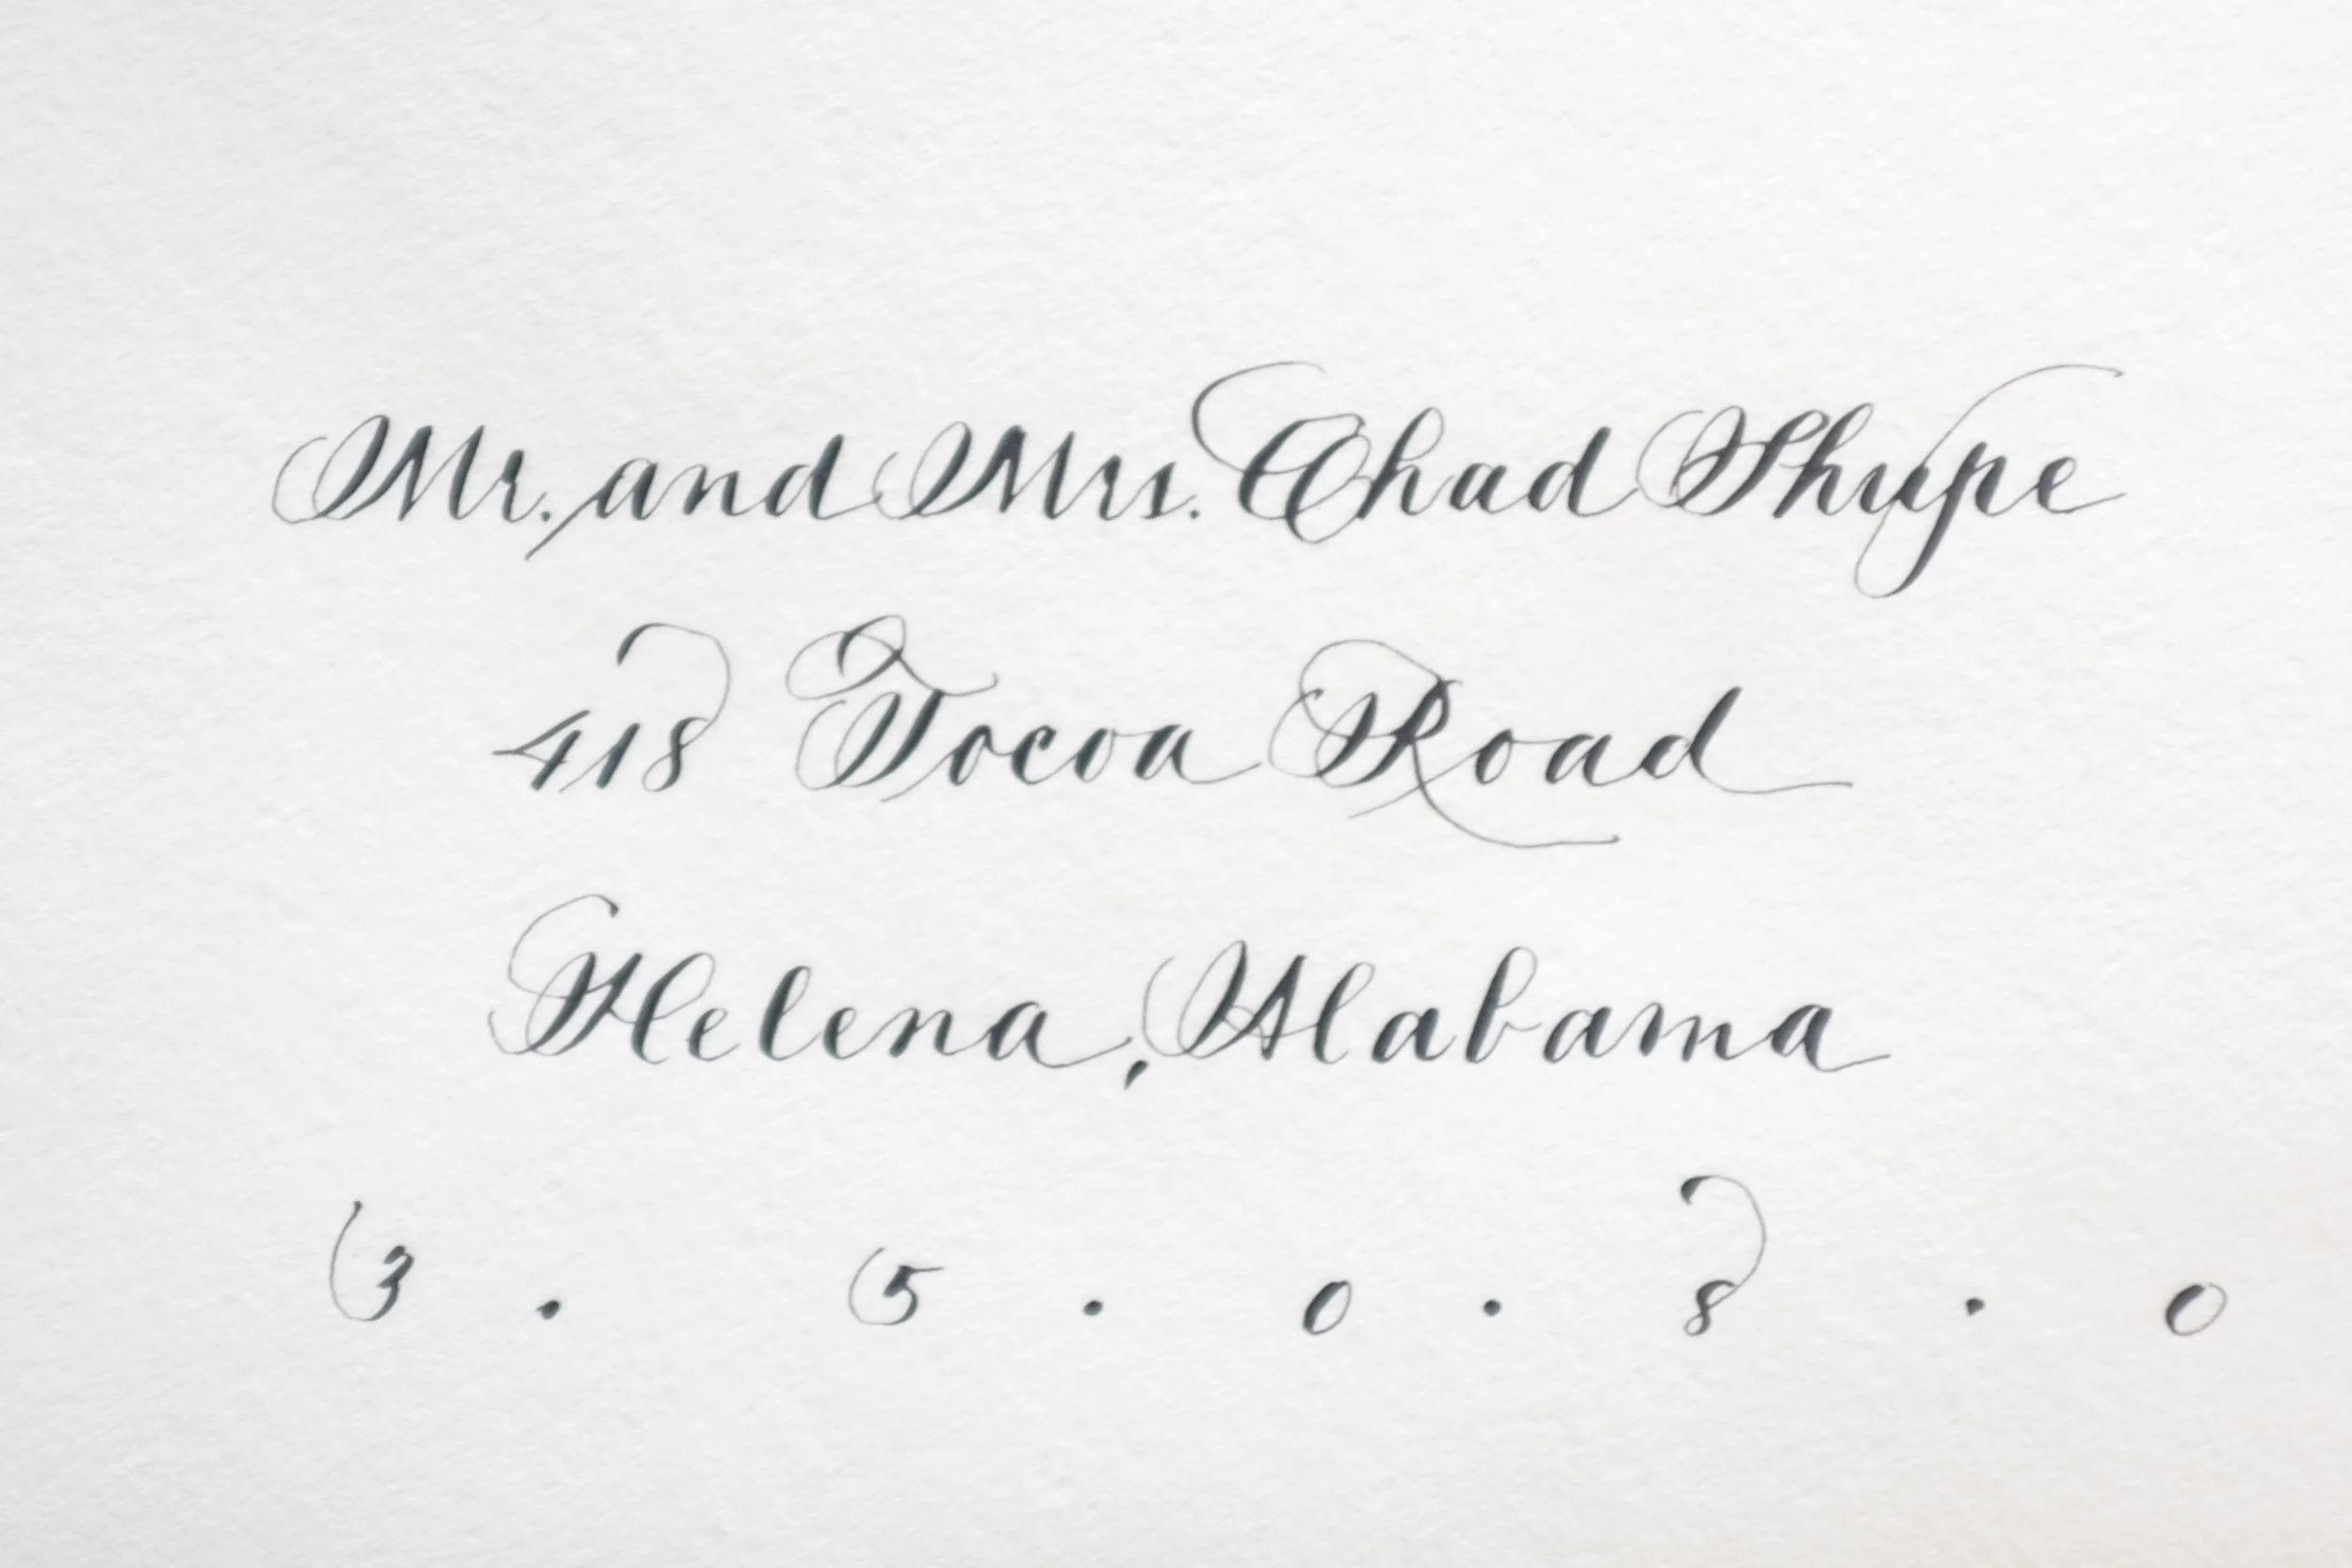 Mr. and Mrs. Chad Shupe
418 Tocoa Road
Helena, Alabama
3 . 5 . 0 . 8 . 0